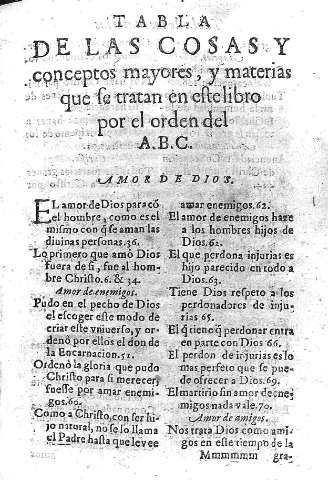 TABLA
DE LAS COSAS Y
conceptos mayores, y materias
que se tratan en este libro
por el orden del
A.B.C.
AMOR DE DIOS.
EL amor de Dios para cõ
el hombre, como es el
mismo con q̃ se aman las
diuinas personas.36.
Lo primero que amò Dios
fuera de si, fue al hom-
bre Christo.6.& 34.
Amor de enemigos.
Pudo en el pecho de Dios
el escoger este modo de
criar este vniuerso, y or-
denò por ellos el don de
la Encarnacion.51.
Ordenò la gloria que pudo
Christo para si merecer,
fuesse por amar enemi-
gos.69.
Como a Christo, con ser hi-
jo natural, no se lo llama
el Padre hasta que le vee
amar enemigos.62.
El amor de enemigos haze
a los hombres hijos de
Dios.62.
El que perdona injurias es
hijo parecido en todo a
Dios.63.
Tiene Dios respeto a los
perdonadores de inju-
rias 65.
El q̃ tiene q̃ perdonar entra
en parte con Dios 66.
El perdon de injurias es lo
mas perfeto que se pue-
de ofrecer a Dios.69.
El martirio sin amor de ene-
migos nada vale.70.
Amor de amigos.
Nos trata Dios como ami-
gos en este tiempo de la
Mmmmmm gra-